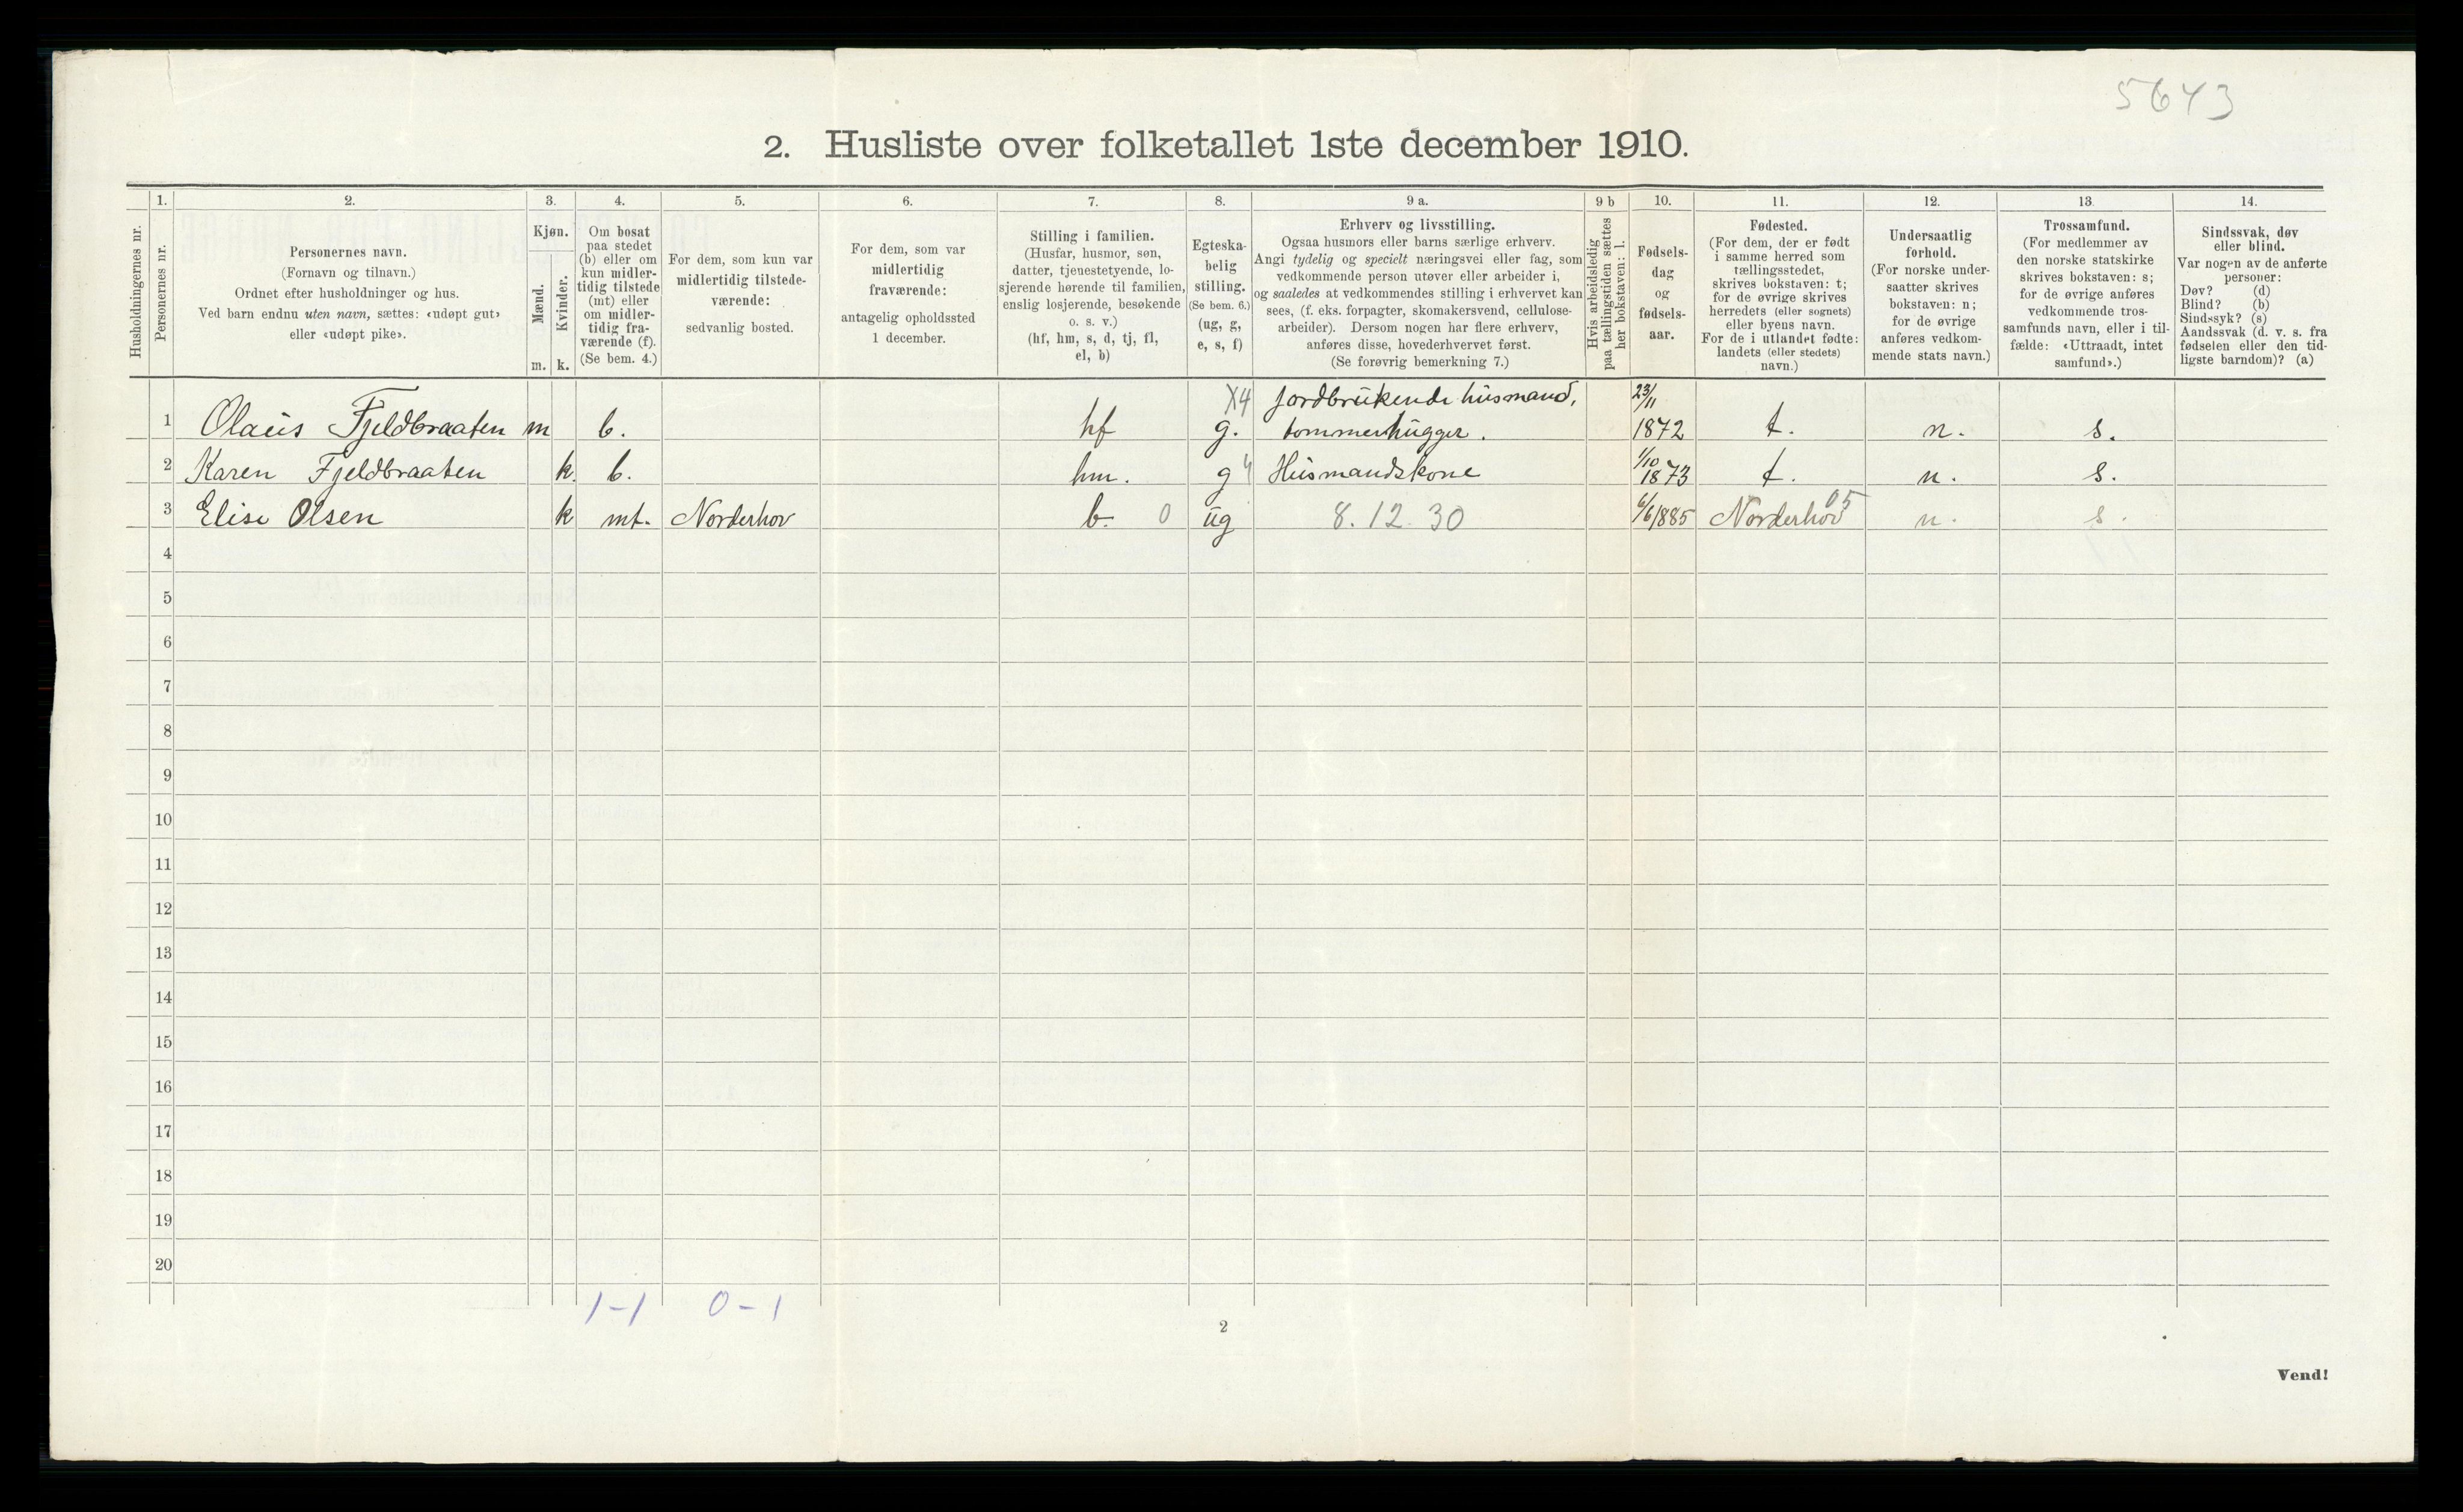 5643
2. Husliste over folketallet 1ste december 1910.
Husholdningernes nr.
1.
Personernes nr.
2.
Personernes navn.
(Fornavn og tilnavn.)
Ordnet efter husholdninger og hus.
Ved barn endnu uten navn, sættes: «udøpt gut»
eller «udøpt pike».
3.
Kjøn.
Mænd.
Kvinder.
m. k.
4.
Om bosat
paa stedet
(b) eller om
kun midler-
tidig tilstede
(mt) eller
om midler-
tidig fra-
værende (f).
(Se bem. 4.)
5.
For dem, som kun var
midlertidig tilstede-
værende:
sedvanlig bosted.
6.
For dem, som var
midlertidig
fraværende:
antagelig opholdssted
1 december.
7.
Stilling i familien.
(Husfar, husmor, søn,
datter, tjenestetyende, lo-
sjerende hørende til familien,
enslig losjerende, besøkende
o. s. v.)
(hf, hm, s, d, tj, fl,
el, b)
8.
Egteska-
belig
stilling.
(Se bem. 6.)
(ug, g,
e, s, f)
9 a.
Erhverv og livsstilling.
Ogsaa husmors eller barns særlige erhverv.
Angi tydelig og specielt næringsvei eller fag, som
vedkommende person utøver eller arbeider i,
og saaledes at vedkommendes stilling i erhvervet kan
sees, (f. eks. forpagter, skomakersvend, cellulose-
arbeider). Dersom nogen har flere erhverv,
anføres disse, hovederhvervet først.
(Se forøvrig bemerkning 7.)
9 b
Hvis arbeidsledig
paa tællingstiden sættes
her bokstaven: l.
10.
Fødsels-
dag
og
fødsels-
aar.
11.
Fødested.
(For dem, der er født
i samme herred som
tællingsstedet,
skrives bokstaven: t;
for de øvrige skrives
herredets (eller sognets)
eller byens navn.
For de i utlandet fødte:
landets (eller stedets)
navn.)
12.
Undersaatlig
forhold.
(For norske under-
saatter skrives
bokstaven: n;
for de øvrige
anføres vedkom-
mende stats navn.)
13.
Trossamfund.
(For medlemmer av
den norske statskirke
skrives bokstaven: s;
for de øvrige anføres
vedkommende tros-
samfunds navn, eller i til-
fælde: «Uttraadt, intet
samfund».)
14.
Sindssvak, døv
eller blind.
Var nogen av de anførte
personer:
Døv? (d)
Blind? (b)
Sindssyk? (s)
Aandssvak (d. v. s. fra
fødselen eller den tid-
ligste barndom)? (a)
X4 jordbrukende husmand, 23/11
1 Olaus Fjeldbraaten m b. hf g. tommerhugger. 1872 t. n. s.
2 Karen Fjeldbraaten k. b. hm. g 4 Husmandskone 1/10 1873 t. n. s.
3 Elise Olsen k mt. Norderhov b. 0 ug 8.12.30 6/6 1885 Norderhov 05 n. s.
4
5
6
7
8
9
10
11
12
13
14
15
16
17
18
19
20
1-1 0-1
2
Vend!